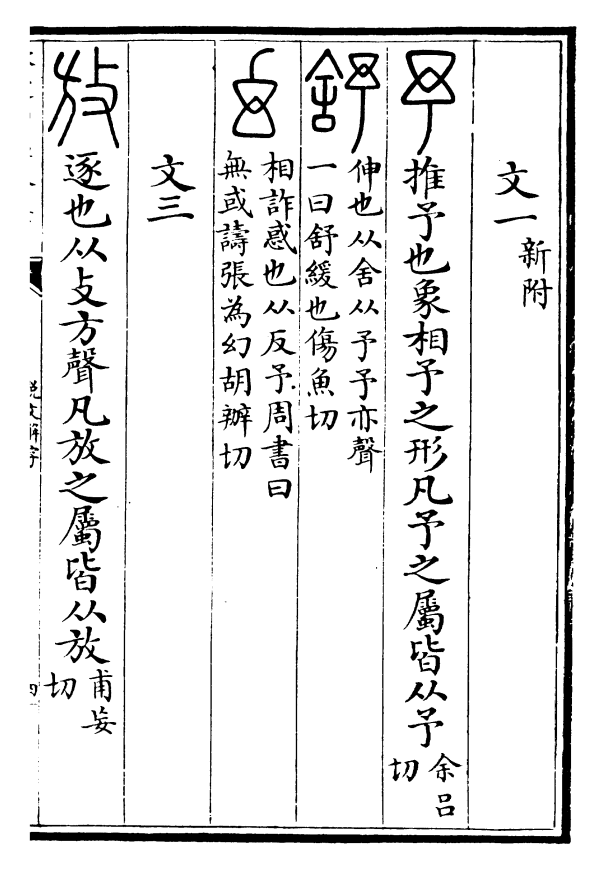 文一新附
予推予也象相予之形凡予之屬皆从予余呂切
舒伸也从舍从予予亦聲
一曰舒緩也傷魚切
幻相詐惑也从反予周書曰
無或譸張為幻胡辦切
文三
放逐也从攴方聲凡放之屬皆从放甫妄切
說文解字
四